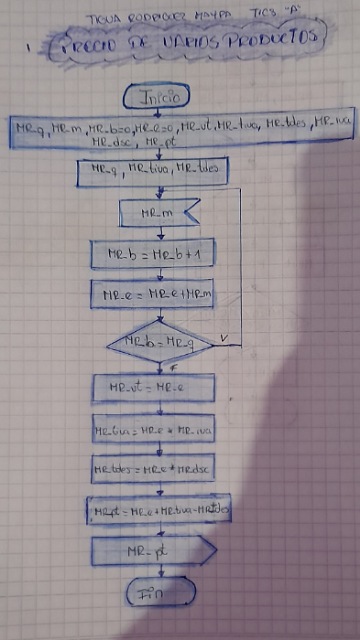 TIGUA RODRIGUEZ MAYRA TICS "A"
1 PRECIO DE VARIOS PRODUCTOS
Inicio
MR_q, MR_m, MR_b=0, MR_e=0, MR_vt, MR_tiva, MR_tdes, MR_iva
MR_dsc, MR_pt
MR_q, MR_tiva, MR_tdes
MR_m
MR_b = MR_b+1
MR_e = MR_e+MR_m
MR_b = MR_q V
F
MR_vt = MR_e
MR_tiva = MR_e * MR_iva
MR_tdes = MR_e * MR_dsc
MR_pt = MR_e + MR_tiva - MR_tdes
MR_pt
Fin